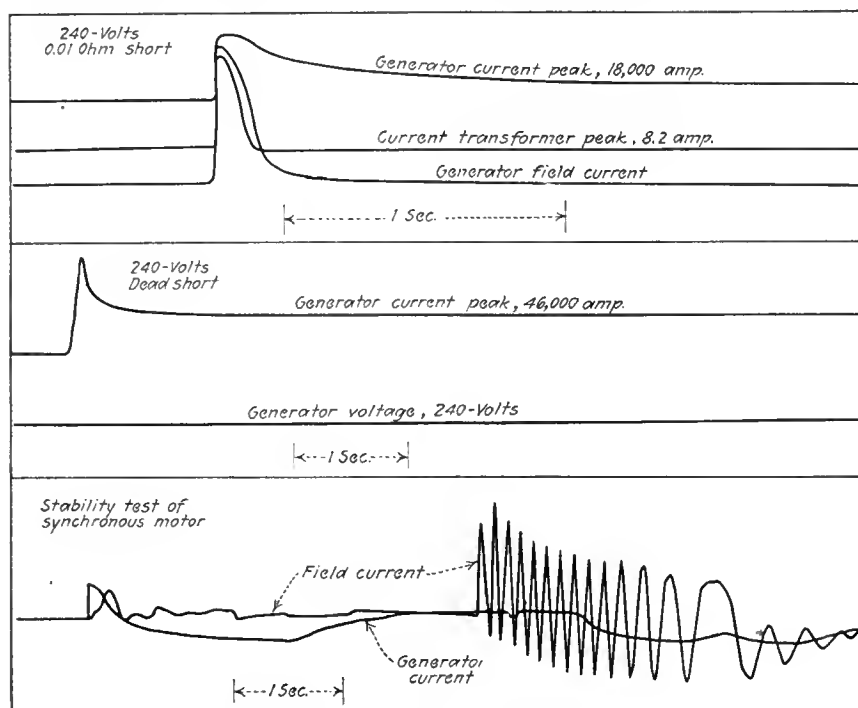 240-Volts
0.01 Ohm short
Generator current peak, 18,000 amp.
Current transformer peak, 8.2 amp.
Generator field current
1 Sec.
240-Volts
Dead short
Generator current peak, 46,000 amp.
Generator voltage, 240-Volts
1 Sec.
Stability test of
synchronous motor
Field current
Generator
current
1 Sec.